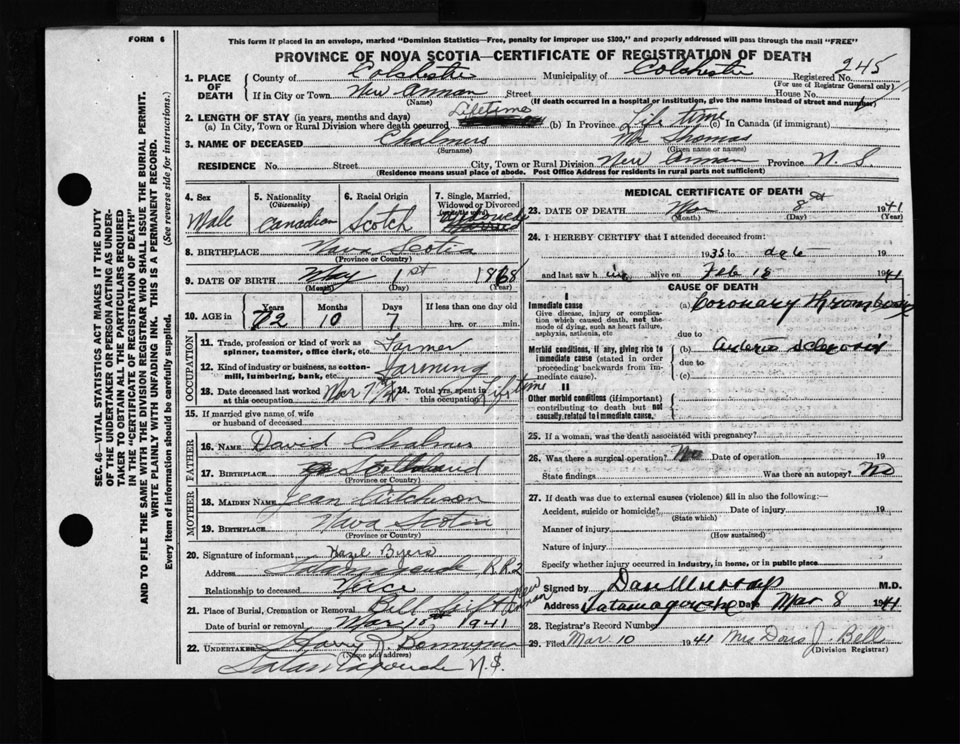 FORM 6
This form if placed in an envelope, marked "Dominion Statistics—Free, penalty for improper use $300," and properly addressed will pass through the mail "FREE"
PROVINCE OF NOVA SCOTIA—CERTIFICATE OF REGISTRATION OF DEATH
245
1. PLACE OF DEATH County of Colchester Municipality of Colchester Registered No.
(For use of Registrar General only)
If in City or Town New Annan Street House No.
(Name) (If death occurred in a hospital or institution, give the name instead of street and number)
2. LENGTH OF STAY (in years, months and days)
(a) In City, Town or Rural Division where death occurred Lifetime (b) In Province Life time (c) In Canada (if immigrant)
3. NAME OF DECEASED Chalmers Thomas
(Surname) (Given name or names)
RESIDENCE No. Street City, Town or Rural Division New Annan Province N. S.
(Residence means usual place of abode. Post Office Address for residents in rural parts not sufficient)
4. Sex Male
5. Nationality (Citizenship) Canadian
6. Racial Origin Scotch
7. Single, Married, Widowed or Divorced
8. BIRTHPLACE Nova Scotia
(Province or Country)
9. DATE OF BIRTH May 1st 1868
(Month) (Day) (Year)
10. AGE in Years Months Days If less than one day
72 10 7 hrs. or min.
OCCUPATION
11. Trade, profession or kind of work as spinner, teamster, office clerk, etc. Farmer
12. Kind of industry or business, as cotton-mill, lumbering, bank, etc. Farming
13. Date deceased last worked at this occupation Mar 7th 14. Total yrs. spent in this occupation Lifetime
15. If married give name of wife or husband of deceased
FATHER
16. NAME David Chalmers
17. BIRTHPLACE Scotland
MOTHER
18. MAIDEN NAME Jean
19. BIRTHPLACE Nova Scotia
(Province or Country)
20. Signature of informant Hazel Byers
Address Tatamagouche R.R.2
Relationship to deceased Niece
21. Place of Burial, Cremation or Removal Bell New Annan
Date of burial or removal Mar 10th 1941
22. UNDERTAKER
(Name and address)
Tatamagouche N.S.
MEDICAL CERTIFICATE OF DEATH
23. DATE OF DEATH Mar 8 1941
(Month) (Day) (Year)
24. I HEREBY CERTIFY that I attended deceased from:
1935 to date 19
and last saw him alive on Feb 18 1941
CAUSE OF DEATH
I
Immediate cause
Give disease, injury or complication which caused death, not the mode of dying, such as heart failure, asphyxia, asthenia, etc
(a) Coronary Thrombosis
due to
Morbid conditions, if any, giving rise to immediate cause (stated in order proceeding backwards from immediate cause).
(b) Arterio sclerosis
due to
(c)
II
Other morbid conditions (if important) contributing to death but not causally related to immediate cause.
25. If a woman, was the death associated with pregnancy?
26. Was there a surgical operation? No Date of operation 19
State findings Was there an autopsy? No
27. If death was due to external causes (violence) fill in also the following:—
Accident, suicide or homicide? Date of injury 19
(State which)
Manner of injury
(How sustained)
Nature of injury
Specify whether injury occurred in industry, in home, or in public place
Signed by Dan Murray M.D.
Address Tatamagouche Date Mar 8 1941
28. Registrar's Record Number
29. Filed Mar 10 1941 Mrs Doris J. Bell
(Division Registrar)
SEC. 46—VITAL STATISTICS ACT MAKES IT THE DUTY
OF THE UNDERTAKER OR PERSON ACTING AS UNDERTAKER TO OBTAIN ALL THE PARTICULARS REQUIRED
IN THE "CERTIFICATE OF REGISTRATION OF DEATH"
AND TO FILE THE SAME WITH THE DIVISION REGISTRAR WHO SHALL ISSUE THE BURIAL PERMIT.
WRITE PLAINLY WITH UNFADING INK. THIS IS A PERMANENT RECORD.
Every item of information should be carefully supplied. (See reverse side for instructions.)